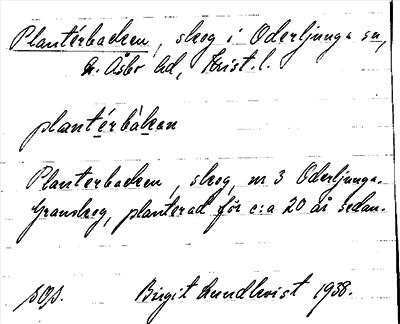 Planterbacken, skog i Oderljunga sn,
N. Åsbo hd, Krist. l.
plantérbàkan
Planterbacken, skog, nr 3 Oderljunga.
Granskog, planterad för c:a 20 år sedan.
Birgit Lundkvist 1938.